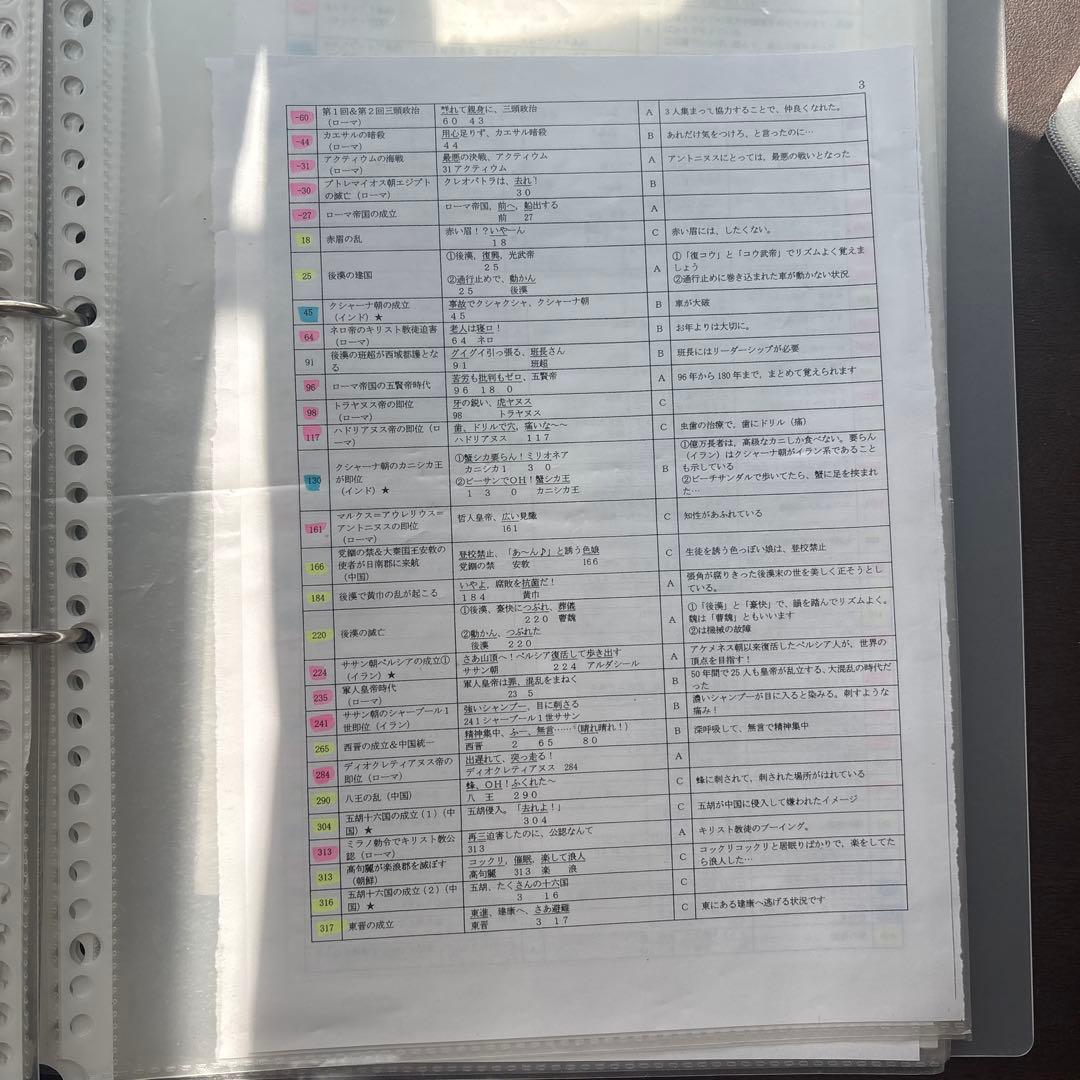 3
-60 第1回＆第2回三頭政治 群れて親身に、三頭政治 A 3人集まって協力することで、仲良くなれた。
（ローマ） 60 43
-44 カエサルの暗殺 用心足りず、カエサル暗殺 B あれだけ気をつけろ、と言ったのに…
（ローマ） 44
-31 アクティウムの海戦 最悪の決戦、アクティウム A アントニヌスにとっては、最悪の戦いとなった
（ローマ） 31アクティウム
-30 プトレマイオス朝エジプト クレオパトラは、去れ！ B
の滅亡（ローマ） 30
-27 ローマ帝国の成立 ローマ帝国、前へ、船出する A
前 27
18 赤眉の乱 赤い眉！？いやーん C 赤い眉には、したくない。
18
25 後漢の建国 ①後漢、復興、光武帝 A ①「復コウ」と「コウ武帝」でリズムよく覚えま
25 しょう
②通行止めで、動かん ②通行止めに巻き込まれた車が動かない状況
25 後漢
45 クシャーナ朝の成立 事故でクシャクシャ、クシャーナ朝 B 車が大破
（インド）★ 45
64 ネロ帝のキリスト教徒迫害 老人は寝ロ！ B お年よりは大切に。
（ローマ） 64 ネロ
91 後漢の班超が西域都護とな グイグイ引っ張る、班長さん B 班長にはリーダーシップが必要
る 91 班超
96 ローマ帝国の五賢帝時代 苦労も批判もゼロ、五賢帝 A 96年から180年まで、まとめて覚えられます
96 18 0
98 トラヤヌス帝の即位 牙の鋭い、虎ヤヌス C
（ローマ） 98 トラヤヌス
117 ハドリアヌス帝の即位（ロ 歯、ドリルで穴、痛いな～～ C 虫歯の治療で、歯にドリル（痛）
ーマ） ハドリアヌス 117
130 クシャーナ朝のカニシカ王 ①蟹シカ要らん！ミリオネア B ①億万長者は、高級なカニしか食べない。要らん
が即位 カニシカ1 30 （イラン）はクシャーナ朝がイラン系であること
（インド）★ ②ビーサンでOH！蟹シカ王 も示している
130 カニシカ王 ②ビーチサンダルで歩いてたら、蟹に足を挟まれ
た…
161 マルクス＝アウレリウス＝ 哲人皇帝、広い見識 C 知性があふれている
アントニヌスの即位 161
（ローマ）
166 党錮の禁＆大秦国王安敦の 登校禁止、「あ～ん♪」と誘う色娘 C 生徒を誘う色っぽい娘は、登校禁止
使者が日南郡に来航 党錮の禁 安敦 166
（中国）
184 後漢で黄巾の乱が起こる いやよ、腐敗を抗菌だ！ A 張角が腐りきった後漢末の世を美しく正そうとし
184 黄巾 ている。
220 後漢の滅亡 ①後漢、豪快につぶれ、葬儀 A ①「後漢」と「豪快」で、韻を踏んでリズムよく。
220 曹魏 魏は「曹魏」ともいいます
②動かん、つぶれた ②は機械の故障
後漢 220
224 ササン朝ペルシアの成立① さあ山頂へ！ペルシア復活して歩き出す A アケメネス朝以来復活したペルシア人が、世界の
（イラン）★ ササン朝 224 アルダシール 頂点を目指す！
235 軍人皇帝時代 軍人皇帝は罪、混乱をまねく B 50年間で25人も皇帝が乱立する、大混乱の時代だ
（ローマ） 23 5 った
241 ササン朝のシャープール1 強いシャンプー、目に刺さる B 濃いシャンプーが目に入ると染みる。刺すような
世即位（イラン） 241シャープール1世ササン 痛み！
265 西晋の成立＆中国統一 精神集中、ふー、無言……（晴れ晴れ！） B 深呼吸して、無言で精神集中
西晋 2 65 80
284 ディオクレティアヌス帝の 出遅れて、突っ走る！ A
即位（ローマ） ディオクレティアヌス 284
290 八王の乱（中国） 蜂、OH！ふくれた～ C 蜂に刺されて、刺された場所がはれている
八 王 290
304 五胡十六国の成立（1）（中 五胡侵入。「去れよ！」 C 五胡が中国に侵入して嫌われたイメージ
国）★ 304
313 ミラノ勅令でキリスト教公 再三迫害したのに、公認なんて A キリスト教徒のブーイング。
認（ローマ） 313
313 高句麗が楽浪郡を滅ぼす コックリ、催眠、楽して浪人 C コックリコックリと居眠りばかりで、楽をしてた
（朝鮮） 高句麗 313 楽 浪 ら浪人した…
316 五胡十六国の成立（2）（中 五胡、たくさんの十六国 C
国）★ 3 16
317 東晋の成立 東進、建康へ、さあ避難 C 東にある建康へ逃げる状況です
東晋 3 17